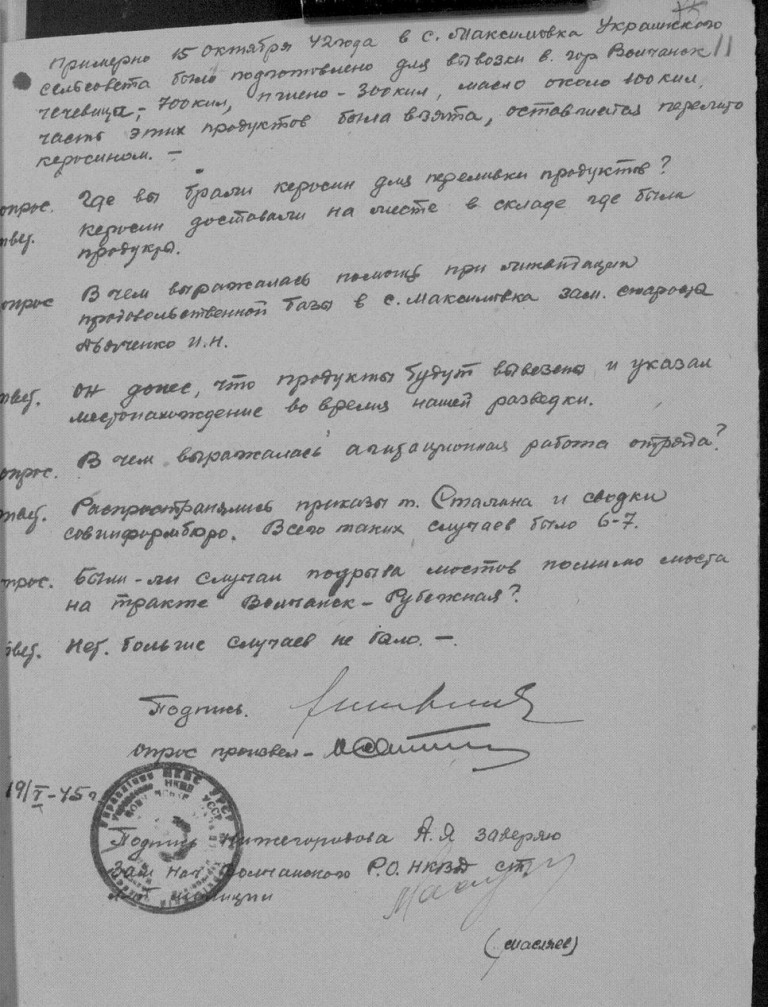 Примерно 15 октября 42 года в с. Максимовка Украинского
сельсовета было подготовлено для вывозки в гор Волчанск
чечевицы,- 700 кил, пшено - 300 кил, масло около 100 кил,
часть этих продуктов была взята, оставшаяся перелито
керосином. -
опрос. Где вы брали керосин для переливки продуктов?
твеб. Керосин доставали на месте в складе где были
продукты.
опрос В чем выражалась помощь при ликвидации
продовольственной базы в с. Максимовка зам. старосты
И.Н.
твеб. Он донес, что продукты будут вывезены и указал
местонахождение во время нашей разведки.
опрос. В чем выражалась агитационная работа отряда?
твеб. Распространялись приказы т. Сталина и сводки
совинформбюро. Всего таких случаев было 6-7.
прос. Были-ли случаи подрыва мостов помимо моста
на тракте Волчанск - Рубежная?
твеб. Нет. больше случаев не было. -
Подпись.
опрос произвел -
19/I-45 г
Подпись Нижегородова А.Я заверяю
Зам Нач Волчанского Р.О. НКВД ст.
милиции
(Масляев)